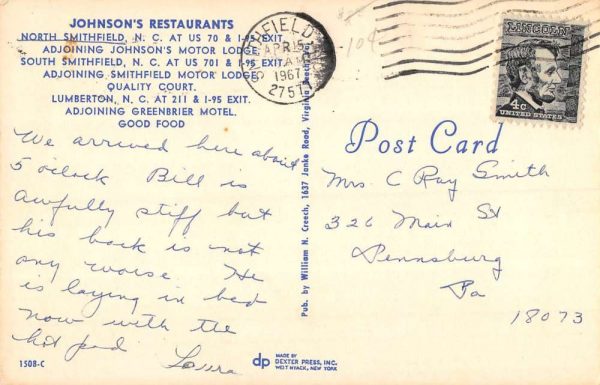 JOHNSON'S RESTAURANTS
NORTH SMITHFIELD, N. C. AT US 70 & I-95 EXIT.
ADJOINING JOHNSON'S MOTOR LODGE.
SOUTH SMITHFIELD, N. C. AT US 701 & I-95 EXIT.
ADJOINING SMITHFIELD MOTOR LODGE,
QUALITY COURT.
LUMBERTON, N. C. AT 211 & I-95 EXIT.
ADJOINING GREENBRIER MOTEL.
GOOD FOOD
We arrived here about
5 o'clock Bill is
awfully stiff but
his back is not
any worse. He
is laying in bed
now with the
hot pad. Laura
1508-C
Pub. by William N. Creech, 1637 Janke Road, Virginia Beach
dp
MADE BY
DEXTER PRESS, INC.
WEST NYACK, NEW YORK
SMITHFIELD
APR 15
AM
1967
2757
LINCOLN
4c
UNITED STATES
Post Card
Mrs. C Ray Smith
326 Main St
Pennsburg
Pa
18073